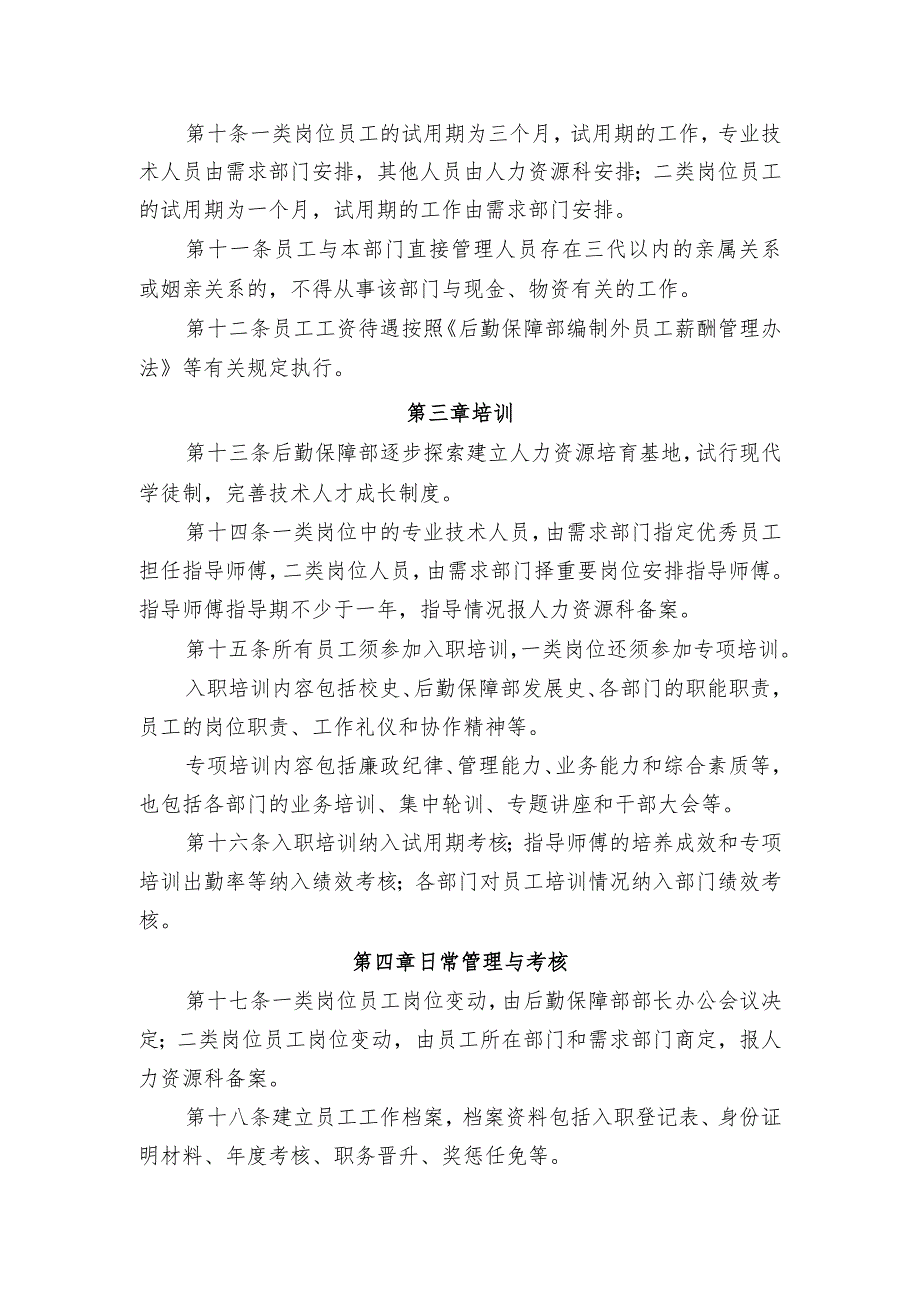 第十条一类岗位员工的试用期为三个月，试用期的工作，专业技
术人员由需求部门安排，其他人员由人力资源科安排；二类岗位员工
的试用期为一个月，试用期的工作由需求部门安排。
第十一条员工与本部门直接管理人员存在三代以内的亲属关系
或姻亲关系的，不得从事该部门与现金、物资有关的工作。
第十二条员工工资待遇按照《后勤保障部编制外员工薪酬管理办
法》等有关规定执行。
第三章培训
第十三条后勤保障部逐步探索建立人力资源培育基地，试行现代
学徒制，完善技术人才成长制度。
第十四条一类岗位中的专业技术人员，由需求部门指定优秀员工
担任指导师傅，二类岗位人员，由需求部门择重要岗位安排指导师傅。
指导师傅指导期不少于一年，指导情况报人力资源科备案。
第十五条所有员工须参加入职培训，一类岗位还须参加专项培训。
入职培训内容包括校史、后勤保障部发展史、各部门的职能职责，
员工的岗位职责、工作礼仪和协作精神等。
专项培训内容包括廉政纪律、管理能力、业务能力和综合素质等，
也包括各部门的业务培训、集中轮训、专题讲座和干部大会等。
第十六条入职培训纳入试用期考核；指导师傅的培养成效和专项
培训出勤率等纳入绩效考核；各部门对员工培训情况纳入部门绩效考
核。
第四章日常管理与考核
第十七条一类岗位员工岗位变动，由后勤保障部部长办公会议决
定；二类岗位员工岗位变动，由员工所在部门和需求部门商定，报人
力资源科备案。
第十八条建立员工工作档案，档案资料包括入职登记表、身份证
明材料、年度考核、职务晋升、奖惩任免等。